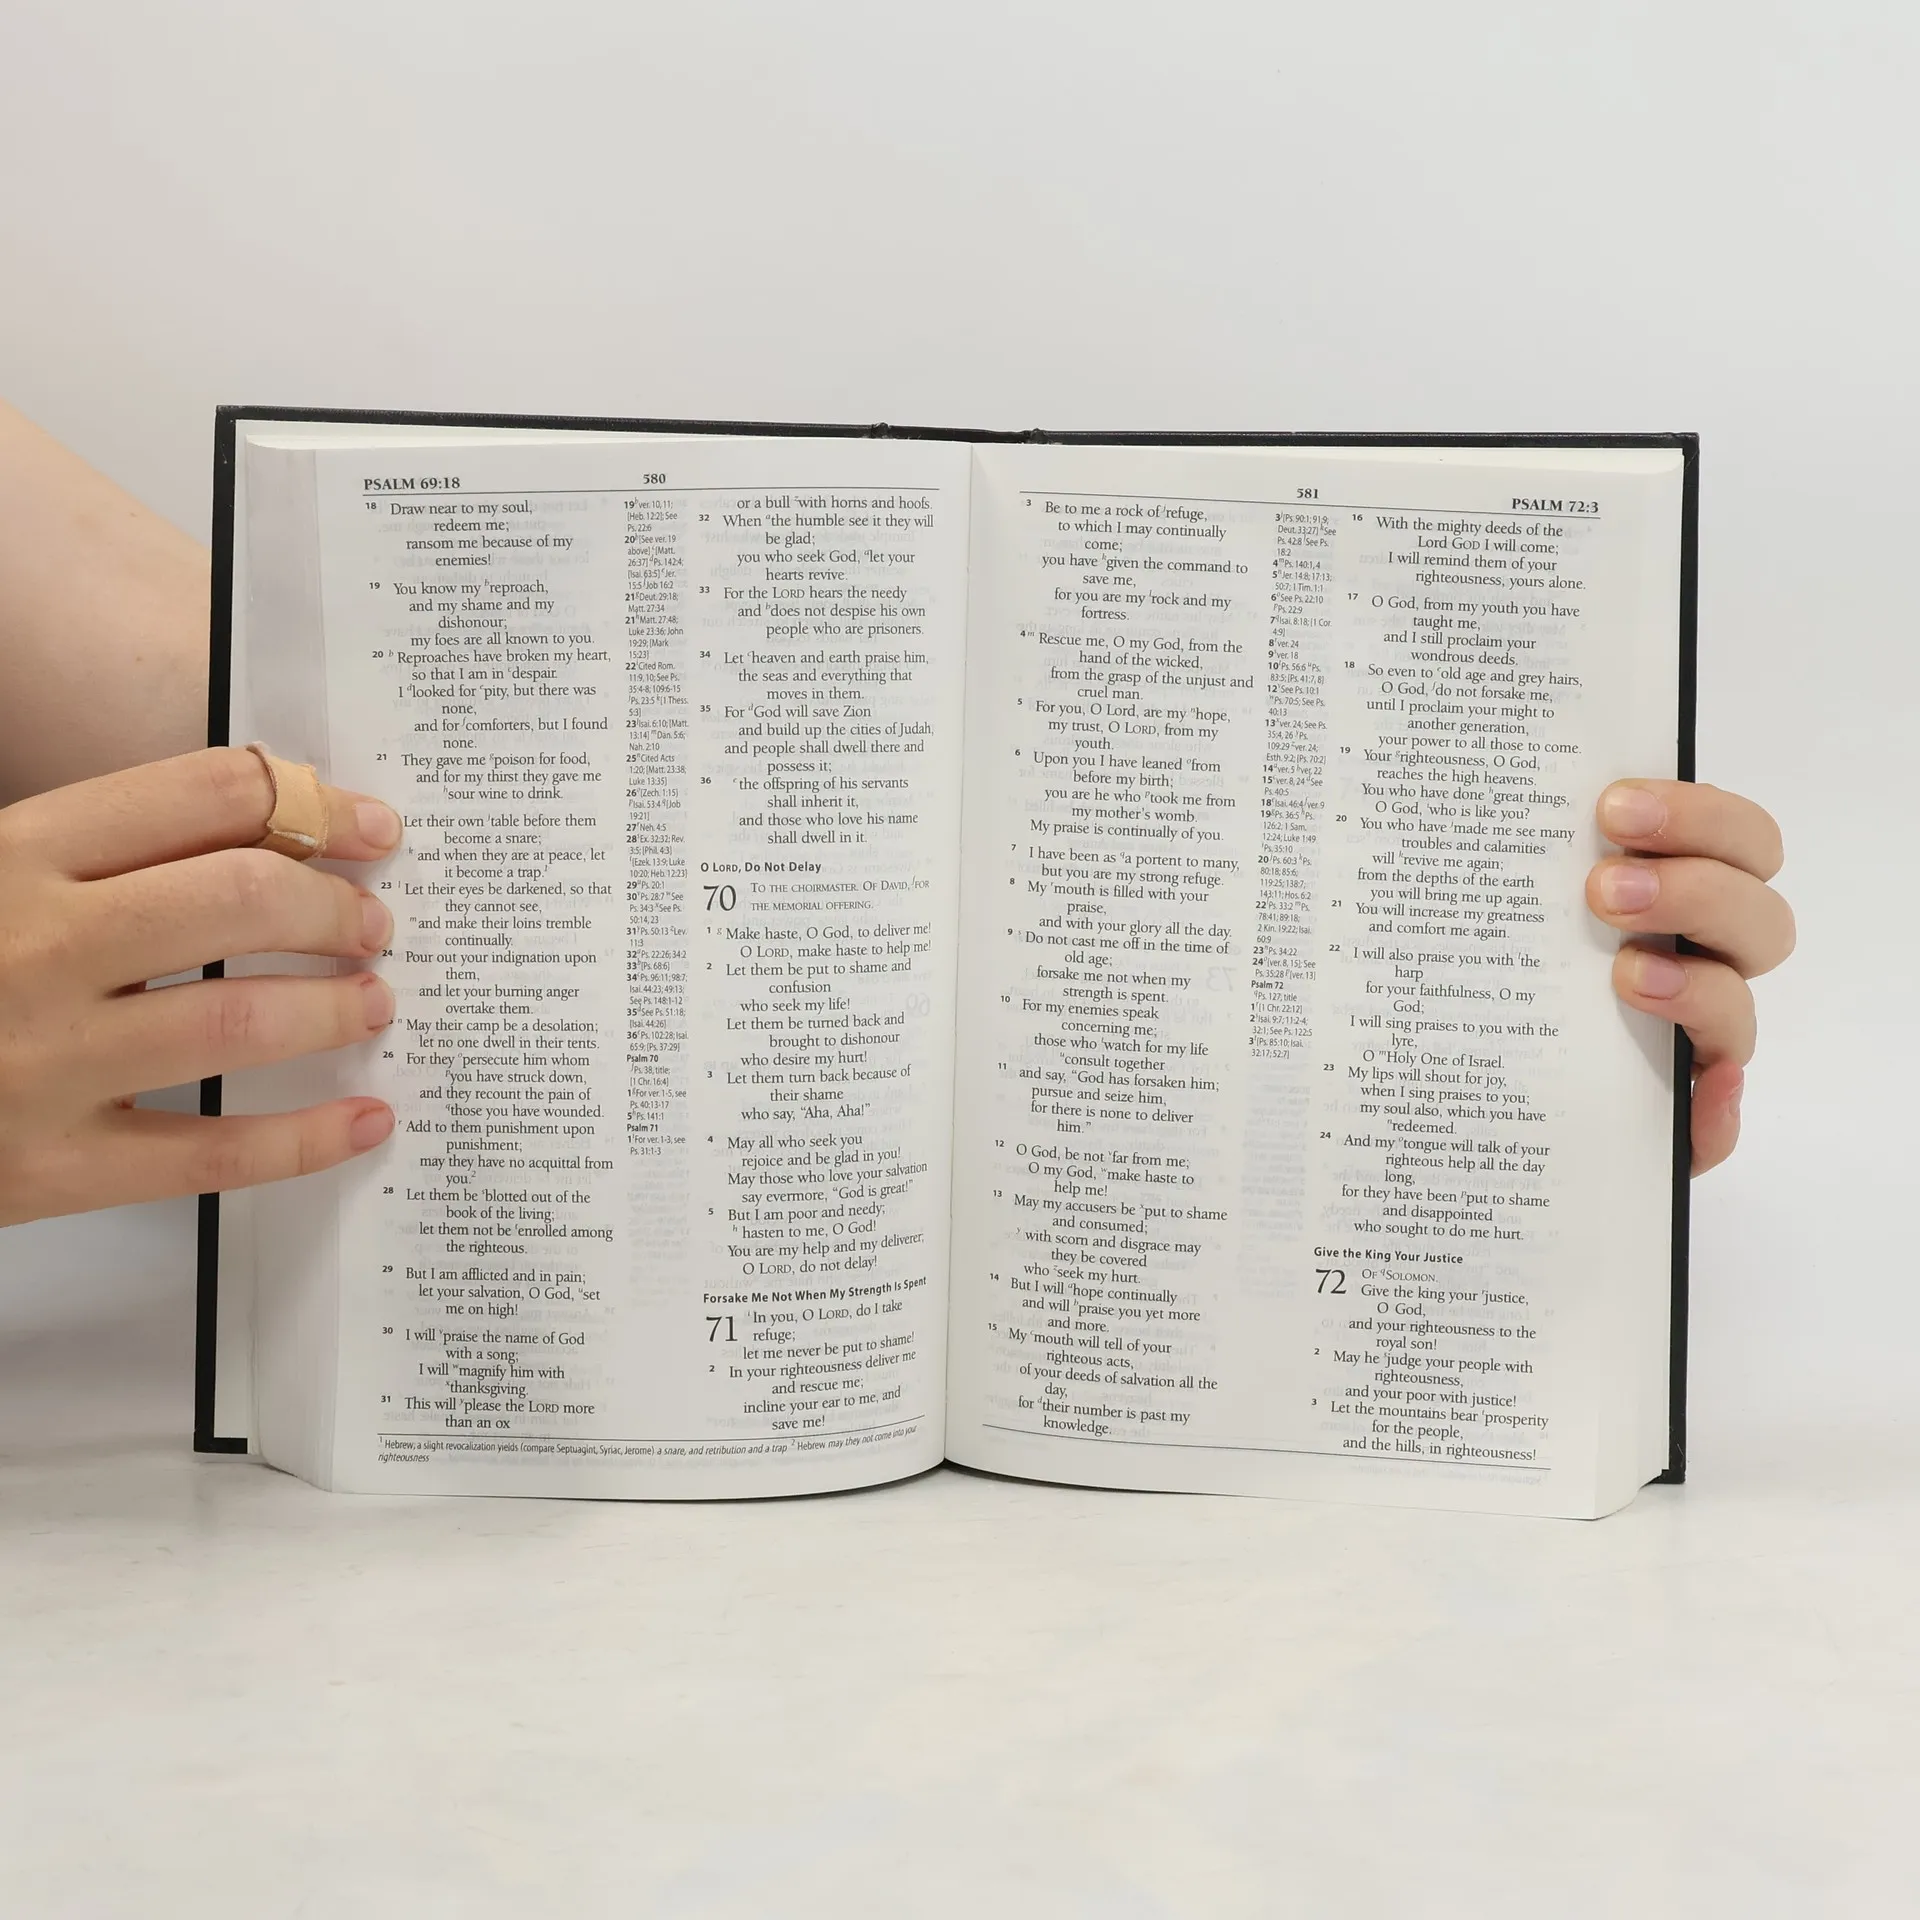 PSALM 69:18
580
18 Draw near to my soul,
redeem me;
ransom me because of my
enemies!
19 You know my hreproach,
and my shame and my
dishonour;
my foes are all known to you.
20 b Reproaches have broken my heart,
so that I am in cdespair.
I dlooked for epity, but there was
none,
and for fcomforters, but I found
none.
21 They gave me gpoison for food,
and for my thirst they gave me
hsour wine to drink.
Let their own itable before them
become a snare;
k and when they are at peace, let
it become a trap.1
23 l Let their eyes be darkened, so that
they cannot see,
mand make their loins tremble
continually.
24 Pour out your indignation upon
them,
and let your burning anger
overtake them.
n May their camp be a desolation;
let no one dwell in their tents.
26 For they opersecute him whom
pyou have struck down,
and they recount the pain of
qthose you have wounded.
r Add to them punishment upon
punishment;
may they have no acquittal from
you.2
28 Let them be sblotted out of the
book of the living;
let them not be tenrolled among
the righteous.
29 But I am afflicted and in pain;
let your salvation, O God, uset
me on high!
30 I will vpraise the name of God
with a song;
I will wmagnify him with
xthanksgiving.
31 This will yplease the LORD more
than an ox
19 h ver. 10, 11;
[Heb. 12:2]; See
Ps. 22:6
20 b [See ver. 19
above] c [Matt.
26:37] d Ps. 142:4;
[Isai. 63:5] e Jer.
15:5 f Job 16:2
21 g Deut. 29:18;
Matt. 27:34
21 h Matt. 27:48;
Luke 23:36; John
19:29; [Mark
15:23]
22 i Cited Rom.
11:9, 10; See Ps.
35:4-8; 109:6-15
j Ps. 23:5 k [1 Thess.
5:3]
23 l Isai. 6:10; [Matt.
13:14] m Dan. 5:6;
Nah. 2:10
25 n Cited Acts
1:20; [Matt. 23:38;
Luke 13:35]
26 o [Zech. 1:15]
p Isai. 53:4 q [Job
19:21]
27 r Neh. 4:5
28 s Ex. 32:32; Rev.
3:5; [Phil. 4:3]
t [Ezek. 13:9; Luke
10:20; Heb. 12:23]
29 u Ps. 20:1
30 v Ps. 28:7 w See
Ps. 34:3 x See Ps.
50:14, 23
31 y Ps. 50:13 z Lev.
11:3
32 a Ps. 22:26; 34:2
33 b [Ps. 68:6]
34 c Ps. 96:11; 98:7;
Isai. 44:23; 49:13;
See Ps. 148:1-12
35 d See Ps. 51:18;
[Isai. 44:26]
36 e Ps. 102:28; Isai.
65:9; [Ps. 37:29]
Psalm 70
f Ps. 38, title;
[1 Chr. 16:4]
1 g For ver. 1-5, see
Ps. 40:13-17
5 h Ps. 141:1
Psalm 71
1 i For ver. 1-3, see
Ps. 31:1-3
or a bull zwith horns and hoofs.
32 When athe humble see it they will
be glad;
you who seek God, alet your
hearts revive.
33 For the LORD hears the needy
and bdoes not despise his own
people who are prisoners.
34 Let cheaven and earth praise him,
the seas and everything that
moves in them.
35 For dGod will save Zion
and build up the cities of Judah,
and people shall dwell there and
possess it;
36 ethe offspring of his servants
shall inherit it,
and those who love his name
shall dwell in it.
O LORD, Do Not Delay
70 TO THE CHOIRMASTER. OF DAVID, fFOR
THE MEMORIAL OFFERING.
1 g Make haste, O God, to deliver me!
O LORD, make haste to help me!
2 Let them be put to shame and
confusion
who seek my life!
Let them be turned back and
brought to dishonour
who desire my hurt!
3 Let them turn back because of
their shame
who say, “Aha, Aha!”
4 May all who seek you
rejoice and be glad in you!
May those who love your salvation
say evermore, “God is great!”
5 But I am poor and needy;
h hasten to me, O God!
You are my help and my deliverer;
O LORD, do not delay!
Forsake Me Not When My Strength Is Spent
71 iIn you, O LORD, do I take
refuge;
let me never be put to shame!
2 In your righteousness deliver me
and rescue me;
incline your ear to me, and
save me!
1 Hebrew; a slight revocalization yields (compare Septuagint, Syriac, Jerome) a snare, and retribution and a trap 2 Hebrew may they not come into your
righteousness
581
PSALM 72:3
3 Be to me a rock of jrefuge,
to which I may continually
come;
you have kgiven the command to
save me,
for you are my lrock and my
fortress.
4 m Rescue me, O my God, from the
hand of the wicked,
from the grasp of the unjust and
cruel man.
5 For you, O Lord, are my nhope,
my trust, O LORD, from my
youth.
6 Upon you I have leaned ofrom
before my birth;
you are he who ptook me from
my mother's womb.
My praise is continually of you.
7 I have been as qa portent to many,
but you are my strong refuge.
8 My rmouth is filled with your
praise,
and with your glory all the day.
9 s Do not cast me off in the time of
old age;
forsake me not when my
strength is spent.
10 For my enemies speak
concerning me;
those who twatch for my life
uconsult together
11 and say, “God has forsaken him;
pursue and seize him,
for there is none to deliver
him.”
12 O God, be not vfar from me;
O my God, wmake haste to
help me!
13 May my accusers be xput to shame
and consumed;
y with scorn and disgrace may
they be covered
who zseek my hurt.
14 But I will ahope continually
and will bpraise you yet more
and more.
15 My cmouth will tell of your
righteous acts,
of your deeds of salvation all the
day,
for dtheir number is past my
knowledge.
3 j [Ps. 90:1; 91:9;
Deut. 33:27] k See
Ps. 42:8 l See Ps.
18:2
4 m Ps. 140:1, 4
5 n Jer. 14:8; 17:13;
50:7; 1 Tim. 1:1
6 o See Ps. 22:10
p Ps. 22:9
7 q Isai. 8:18; [1 Cor.
4:9]
8 r ver. 24
9 s ver. 18
10 t Ps. 56:6 u Ps.
83:5; [Ps. 41:7, 8]
12 v See Ps. 10:1
w Ps. 70:5; See Ps.
40:13
13 x ver. 24; See Ps.
35:4, 26 y Ps.
109:29 z ver. 24;
Esth. 9:2; [Ps. 70:2]
14 a ver. 5 b ver. 22
15 c ver. 8, 24 d See
Ps. 40:5
18 e Isai. 46:4 f ver. 9
19 g Ps. 36:5 h Ps.
126:2; 1 Sam.
12:24; Luke 1:49
i Ps. 35:10
20 j Ps. 60:3 k Ps.
80:18; 85:6;
119:25; 138:7;
143:11; Hos. 6:2
22 l Ps. 33:2 m Ps.
78:41; 89:18;
2 Kin. 19:22; Isai.
60:9
23 n Ps. 34:22
24 o [ver. 8, 15]; See
Ps. 35:28 p [ver. 13]
Psalm 72
q Ps. 127, title
1 r [1 Chr. 22:12]
2 s Isai. 9:7; 11:2-4;
32:1; See Ps. 122:5
3 t [Ps. 85:10; Isai.
32:17; 52:7]
16 With the mighty deeds of the
Lord GOD I will come;
I will remind them of your
righteousness, yours alone.
17 O God, from my youth you have
taught me,
and I still proclaim your
wondrous deeds.
18 So even to eold age and grey hairs,
O God, fdo not forsake me,
until I proclaim your might to
another generation,
your power to all those to come.
19 Your grighteousness, O God,
reaches the high heavens.
You who have done hgreat things,
O God, iwho is like you?
20 You who have jmade me see many
troubles and calamities
will krevive me again;
from the depths of the earth
you will bring me up again.
21 You will increase my greatness
and comfort me again.
22 I will also praise you with lthe
harp
for your faithfulness, O my
God;
I will sing praises to you with the
lyre,
O mHoly One of Israel.
23 My lips will shout for joy,
when I sing praises to you;
my soul also, which you have
nredeemed.
24 And my otongue will talk of your
righteous help all the day
long,
for they have been pput to shame
and disappointed
who sought to do me hurt.
Give the King Your Justice
72 OF qSOLOMON.
Give the king your rjustice,
O God,
and your righteousness to the
royal son!
2 May he sjudge your people with
righteousness,
and your poor with justice!
3 Let the mountains bear tprosperity
for the people,
and the hills, in righteousness!